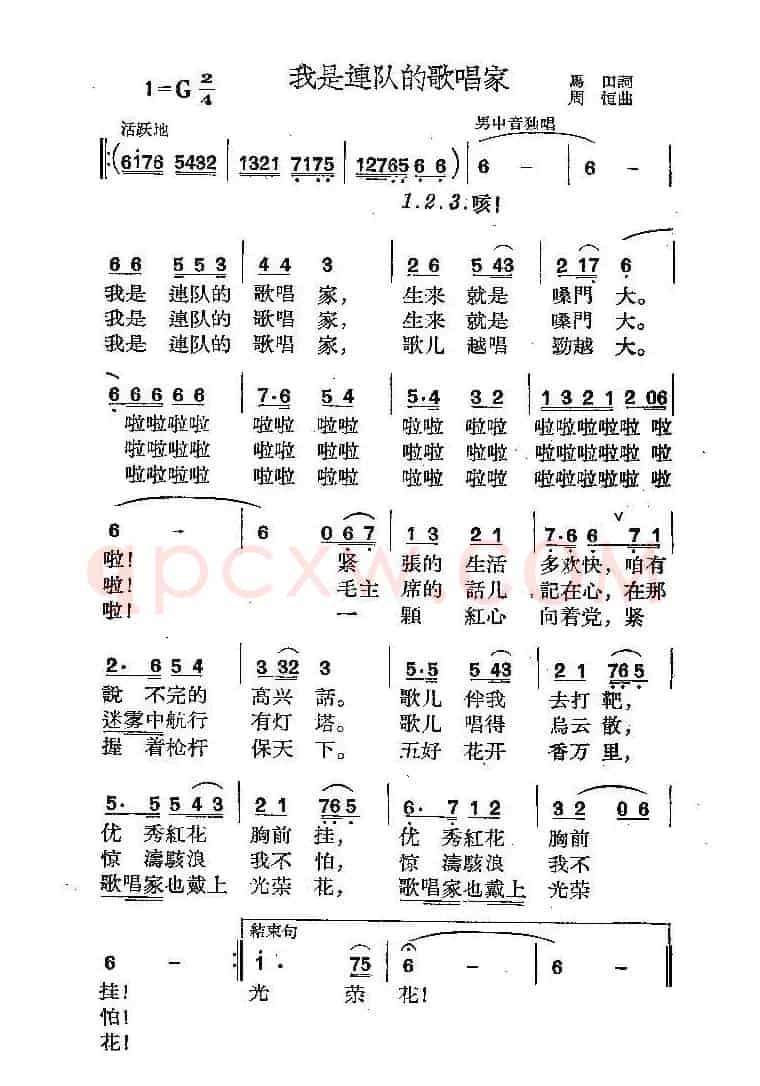 我是連队的歌唱家
1=G 2/4
馬田詞
周恒曲
活跃地
男中音独唱
(6176 5432 | 1321 7175 | 12765 6 6) | 6 – | 6 – |
1.2.3.咳!
6 6 5 5 3 | 4 4 3 | 2 6 5 43 | 2 17 6 |
我是 連队的 歌唱 家, 生来 就是 嗓門 大。
我是 連队的 歌唱 家, 生来 就是 嗓門 大。
我是 連队的 歌唱 家, 歌儿 越唱 勁越 大。
6 6 6 6 6 | 7·6 5 4 | 5·4 3 2 | 1 3 2 1 2 06 |
啦啦啦啦 啦啦 啦啦 啦啦 啦啦 啦啦啦啦啦 啦
啦啦啦啦 啦啦 啦啦 啦啦 啦啦 啦啦啦啦啦 啦
啦啦啦啦 啦啦 啦啦 啦啦 啦啦 啦啦啦啦啦 啦
6 – | 6 0 6 7 | 1 3 2 1 | 7·6 6 V 7 1 |
啦! 紧 張的 生活 多欢快, 咱有
啦! 毛主 席的 話儿 記在心, 在那
啦! 一 顆 紅心 向着党, 紧
qpcxw.com
2· 6 5 4 | 3 32 3 | 5·5 5 43 | 2 1 765 |
說 不完的 高兴 話。 歌儿 伴我 去打 靶,
迷雾中航行 有灯 塔。 歌儿 唱得 烏云 散,
握 着枪杆 保天 下。 五好 花开 香万 里,
5· 5 5 4 3 | 2 1 765 | 6· 7 1 2 | 3 2 0 6 |
优 秀紅花 胸前 挂, 优 秀紅花 胸前
惊 濤駭浪 我不 怕, 惊 濤駭浪 我不
歌唱家也戴上 光荣 花, 歌唱家也戴上 光荣
結束句
6 – :| 1· 75 | 6 – | 6 – |
挂! 光 荣 花!
怕!
花!